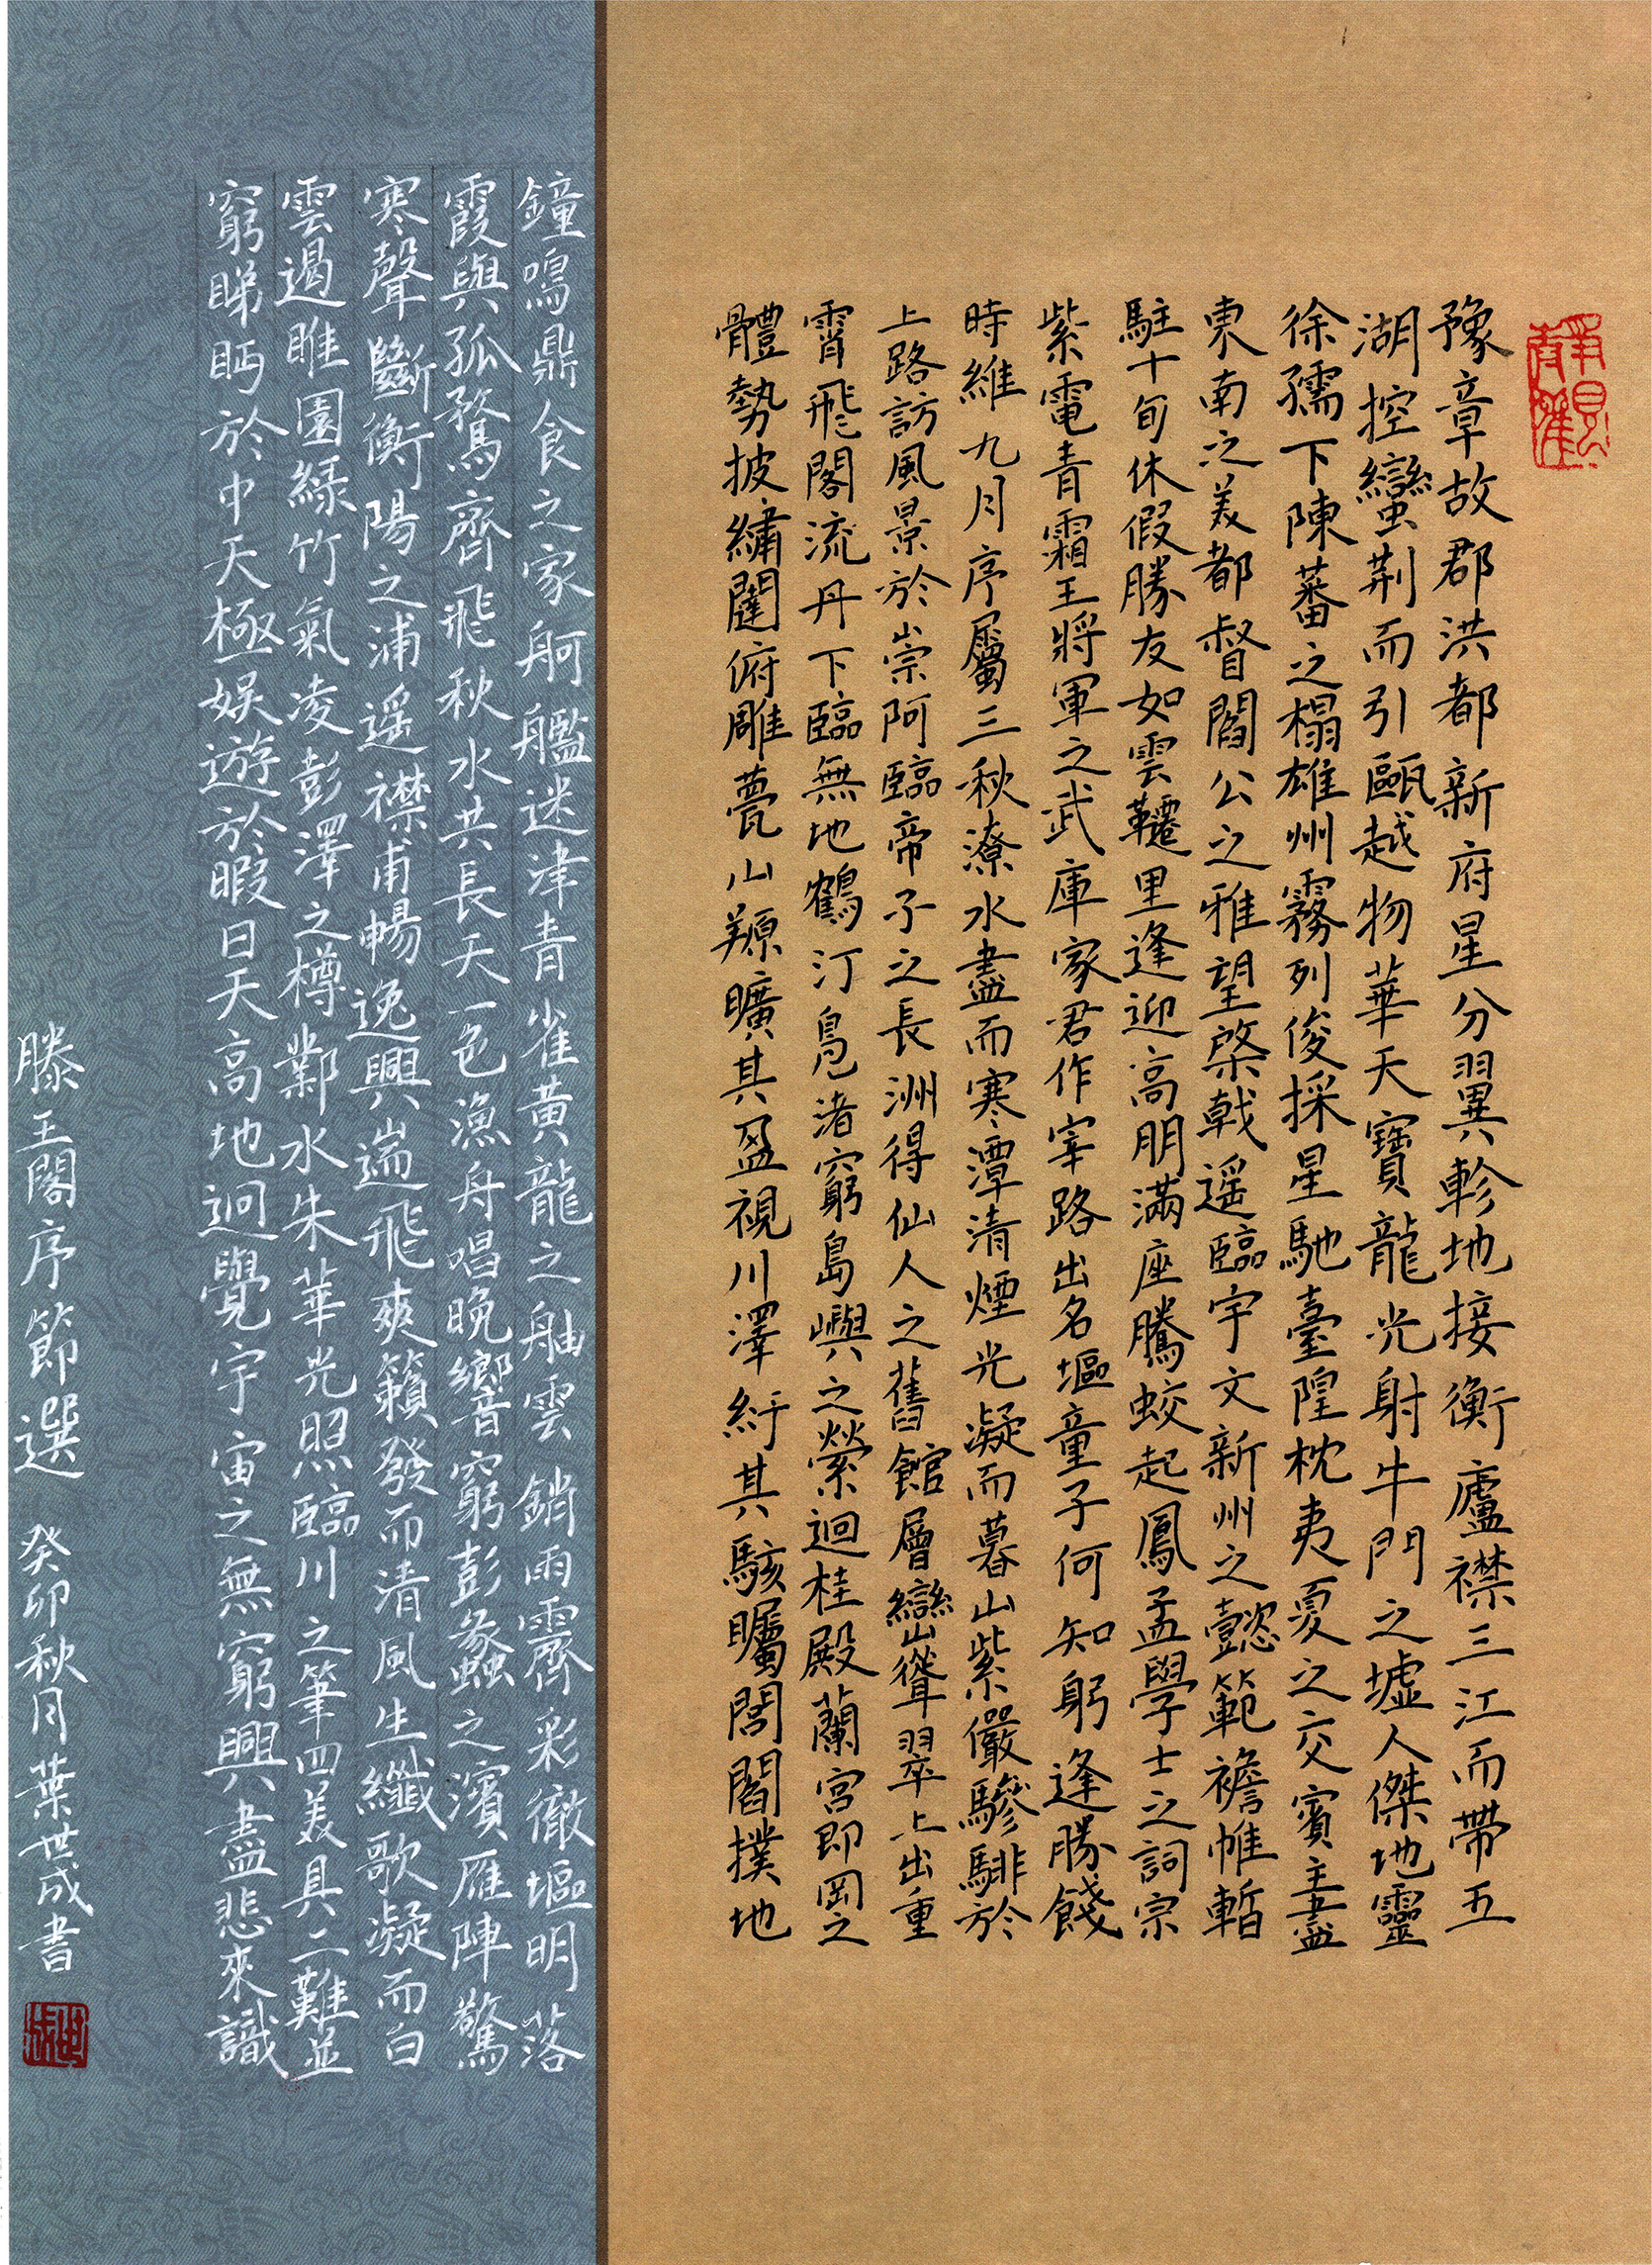 豫章故郡洪都新府星分翼軫地接衡廬襟三江而帶五
湖控蠻荆而引甌越物華天寶龍光射牛鬥之墟人傑地靈
徐孺下陳蕃之榻雄州霧列俊採星馳臺隍枕夷夏之交賓主盡
東南之美都督閻公之雅望棨戟遥臨宇文新州之懿範襜帷暫
駐十旬休假勝友如雲韆里逢迎高朋滿座騰蛟起鳳孟學士之詞宗
紫電青霜王將軍之武庫家君作宰路出名塸童子何知躬逢勝餞
時維九月序屬三秋潦水盡而寒潭清煙光凝而暮山紫儼驂騑於
上路訪風景於崇阿臨帝子之長洲得仙人之舊館層巒聳翠上出重
霄飛閣流丹下臨無地鶴汀鳧渚窮島嶼之縈迴桂殿蘭宮即岡之
體勢披繡闥俯雕甍山𠪱曠其盈視川澤紆其駭矚閭閻撲地
鐘鳴鼎食之家舸艦迷津青雀黃龍之舳雲銷雨霽彩徹塸明落
霞與孤鶩齊飛秋水共長天一色漁舟唱晚響窮彭蠡之濱雁陣驚
寒聲斷衡陽之浦遥襟甫暢逸興遄飛爽籟發而清風生纖歌凝而白
雲遏睢園緑竹氣凌彭澤之樽鄴水朱華光照臨川之筆四美具二難並
窮睇眄於中天極娱遊於暇日天高地迥覺宇宙之無窮興盡悲來識
滕王閣序節選 癸卯秋月葉世成書